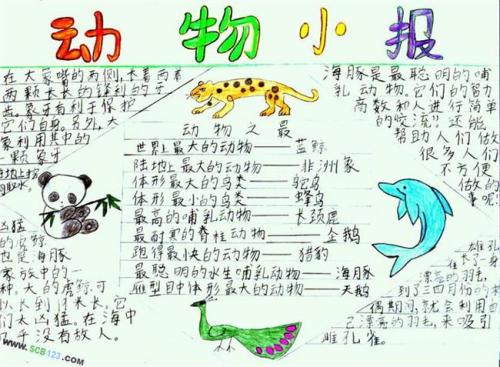 动物小报
在大象嘴的两侧,长着两
两颗长长的锋利的牙
齿。象牙有利于保护
它们自身。另外,大
象利用其中的
一颗象牙
在地上挖
取水。
动物之最
世界上最大的动物——蓝鲸
陆地上最大的动物——非洲象
体形最大的鸟类——鸵鸟
体形最小的鸟类——蜂鸟
最高的哺乳动物——长颈鹿
最耐寒的脊椎动物——企鹅
跑得最快的动物——猎豹
最聪明的水生哺乳动物——海豚
雁型目中体形最大的动物——天鹅
海豚是最聪明的哺
乳动物。它们的智力
商数和人进行简单
的交流?还能
帮助人们做
很多人们
不方便
做的
事呢!
凶猛。
的虎鲸
也是海豚
家族中的一
种。大的虎鲸可
以长到 米长。它
们太凶猛。在海中
几乎没有敌人。
雄孔
雀长了一身
漂亮的羽毛。
到了三四月份的
偶期间,就会利用自
己漂亮的羽毛,来吸引
雌孔雀。
www.SCB123.com